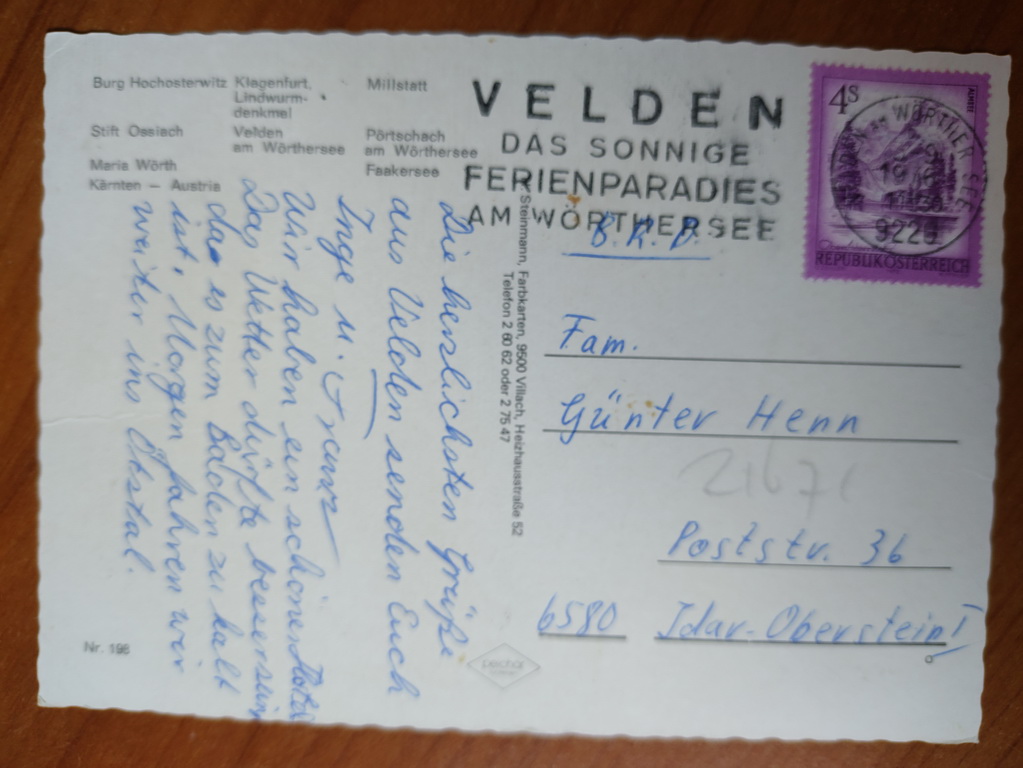 Burg Hochosterwitz Klagenfurt, Lindwurm- denkmal Millstatt
Stift Ossiach Velden am Wörthersee Pörtschach am Wörthersee
Maria Wörth Faakersee
Kärnten – Austria
VELDEN
DAS SONNIGE
FERIENPARADIES
AM WÖRTHERSEE
4S
ALMSEE
AM WÖRTHER SEE
9220
REPUBLIK ÖSTERREICH
Die herzlichsten Grüße
aus Velden senden Euch
Inge u. Franz
Wir haben ein schönes Hotel
Das Wetter dürfte besser sein
da es zum Baden zu kalt
ist. Morgen fahren wir
weiter ins
Steinmann, Farbkarten, 9500 Villach, Heizhausstraße 52
Telefon 2 60 62 oder 2 75 47
B. R. D.
Fam.
Günter Henn
Poststr. 36
6580 Idar-Oberstein I
Nr. 198